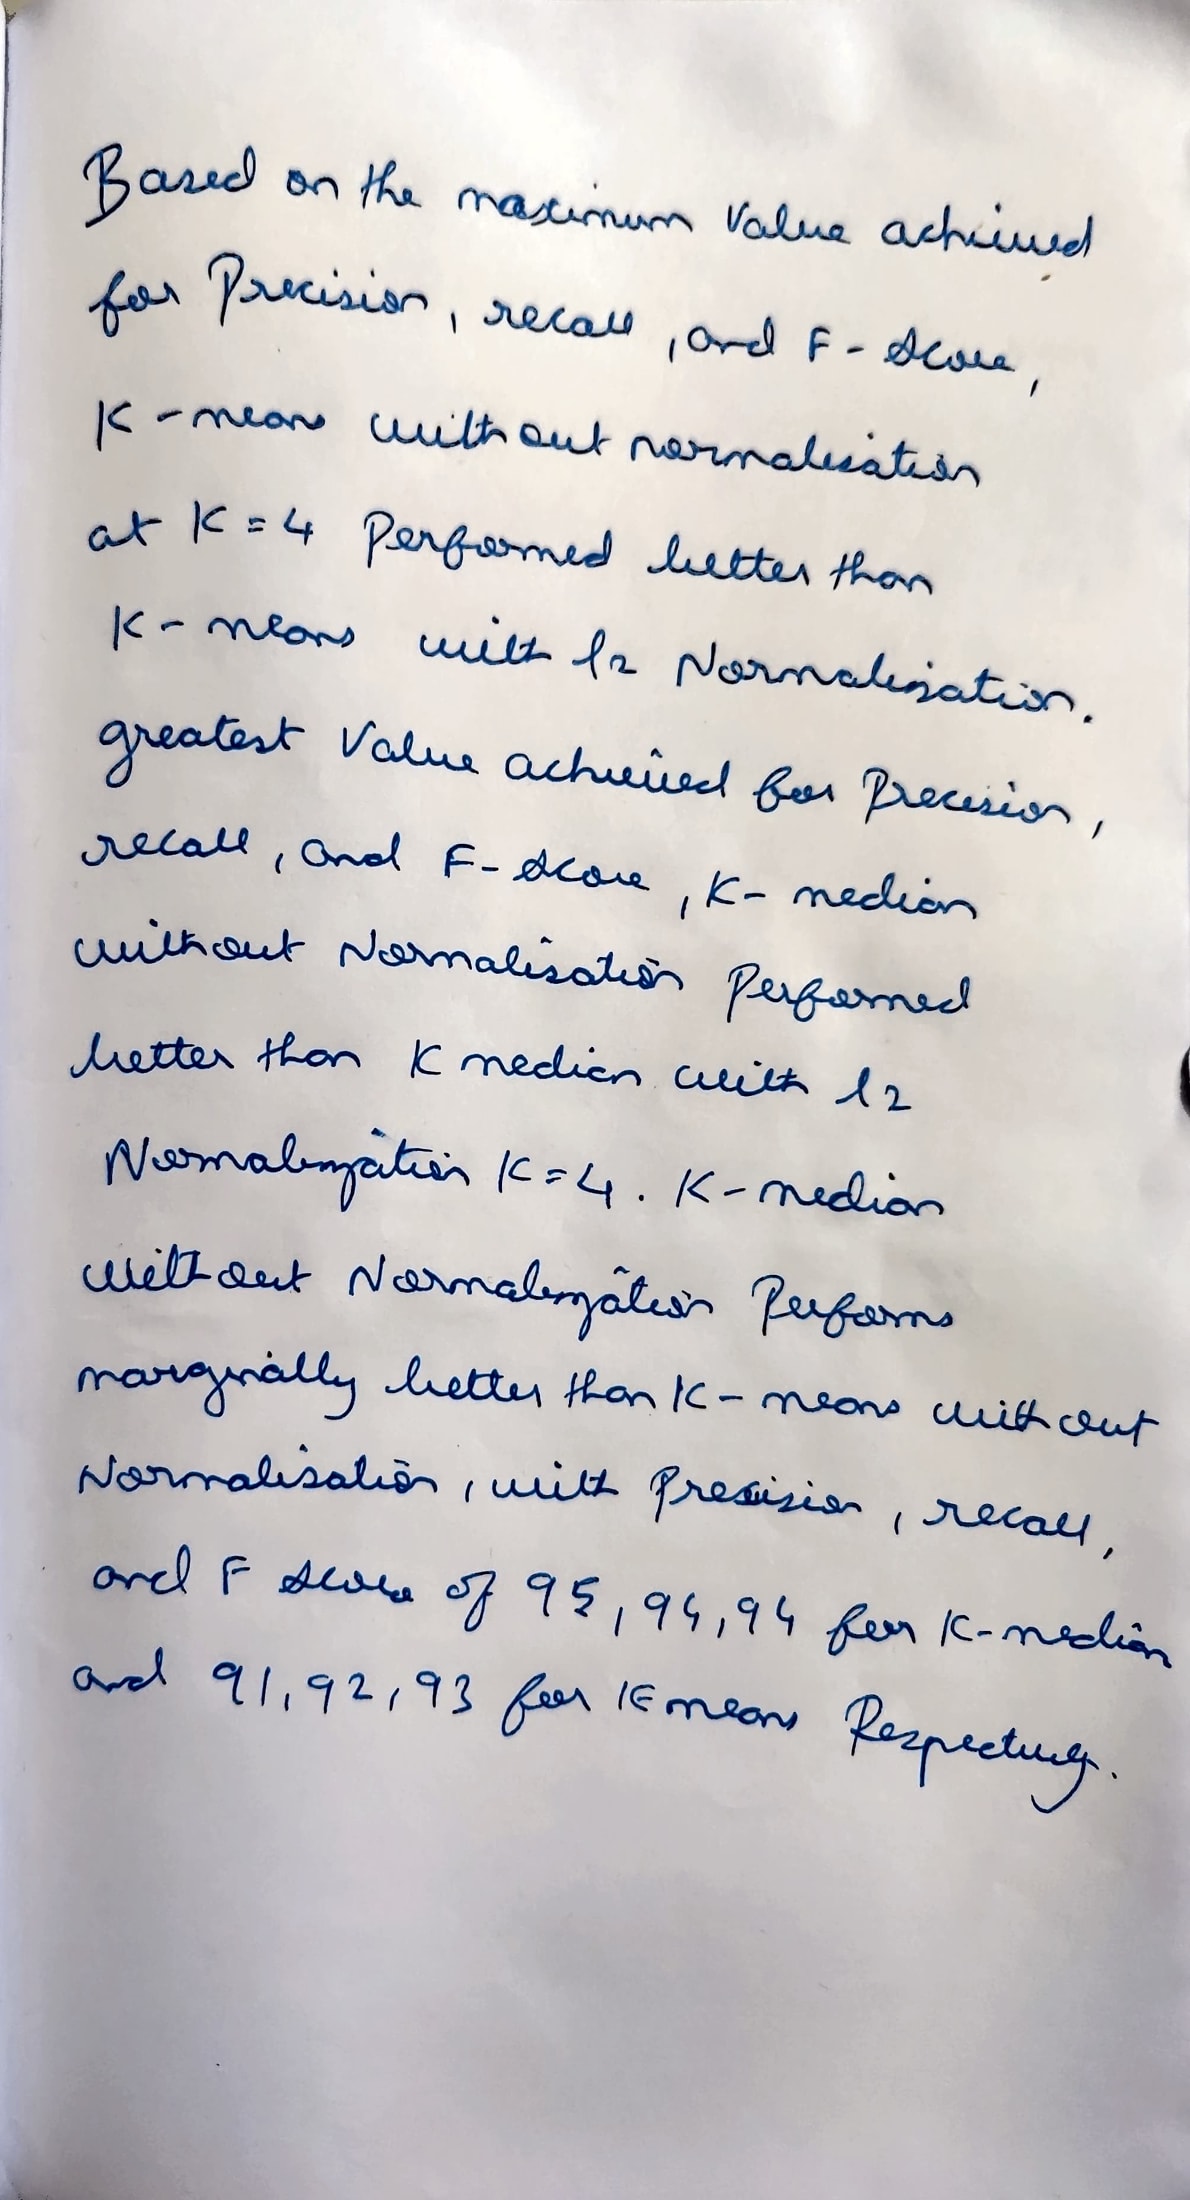 Based on the maximum Value achieved
for Precision, recall, and F-Score,
K-means without normalisation
at K=4 Performed better than
K-means with l2 Normalisation.
greatest Value achieved for Precision,
recall, and F-Score, K-median
without Normalisation Performed
better than K median with l2
Normalization K=4. K-median
without Normalization Performs
marginally better than K-means without
Normalisation, with Precision, recall,
and F Score of 95, 94, 94 for K-median
and 91, 92, 93 for K means